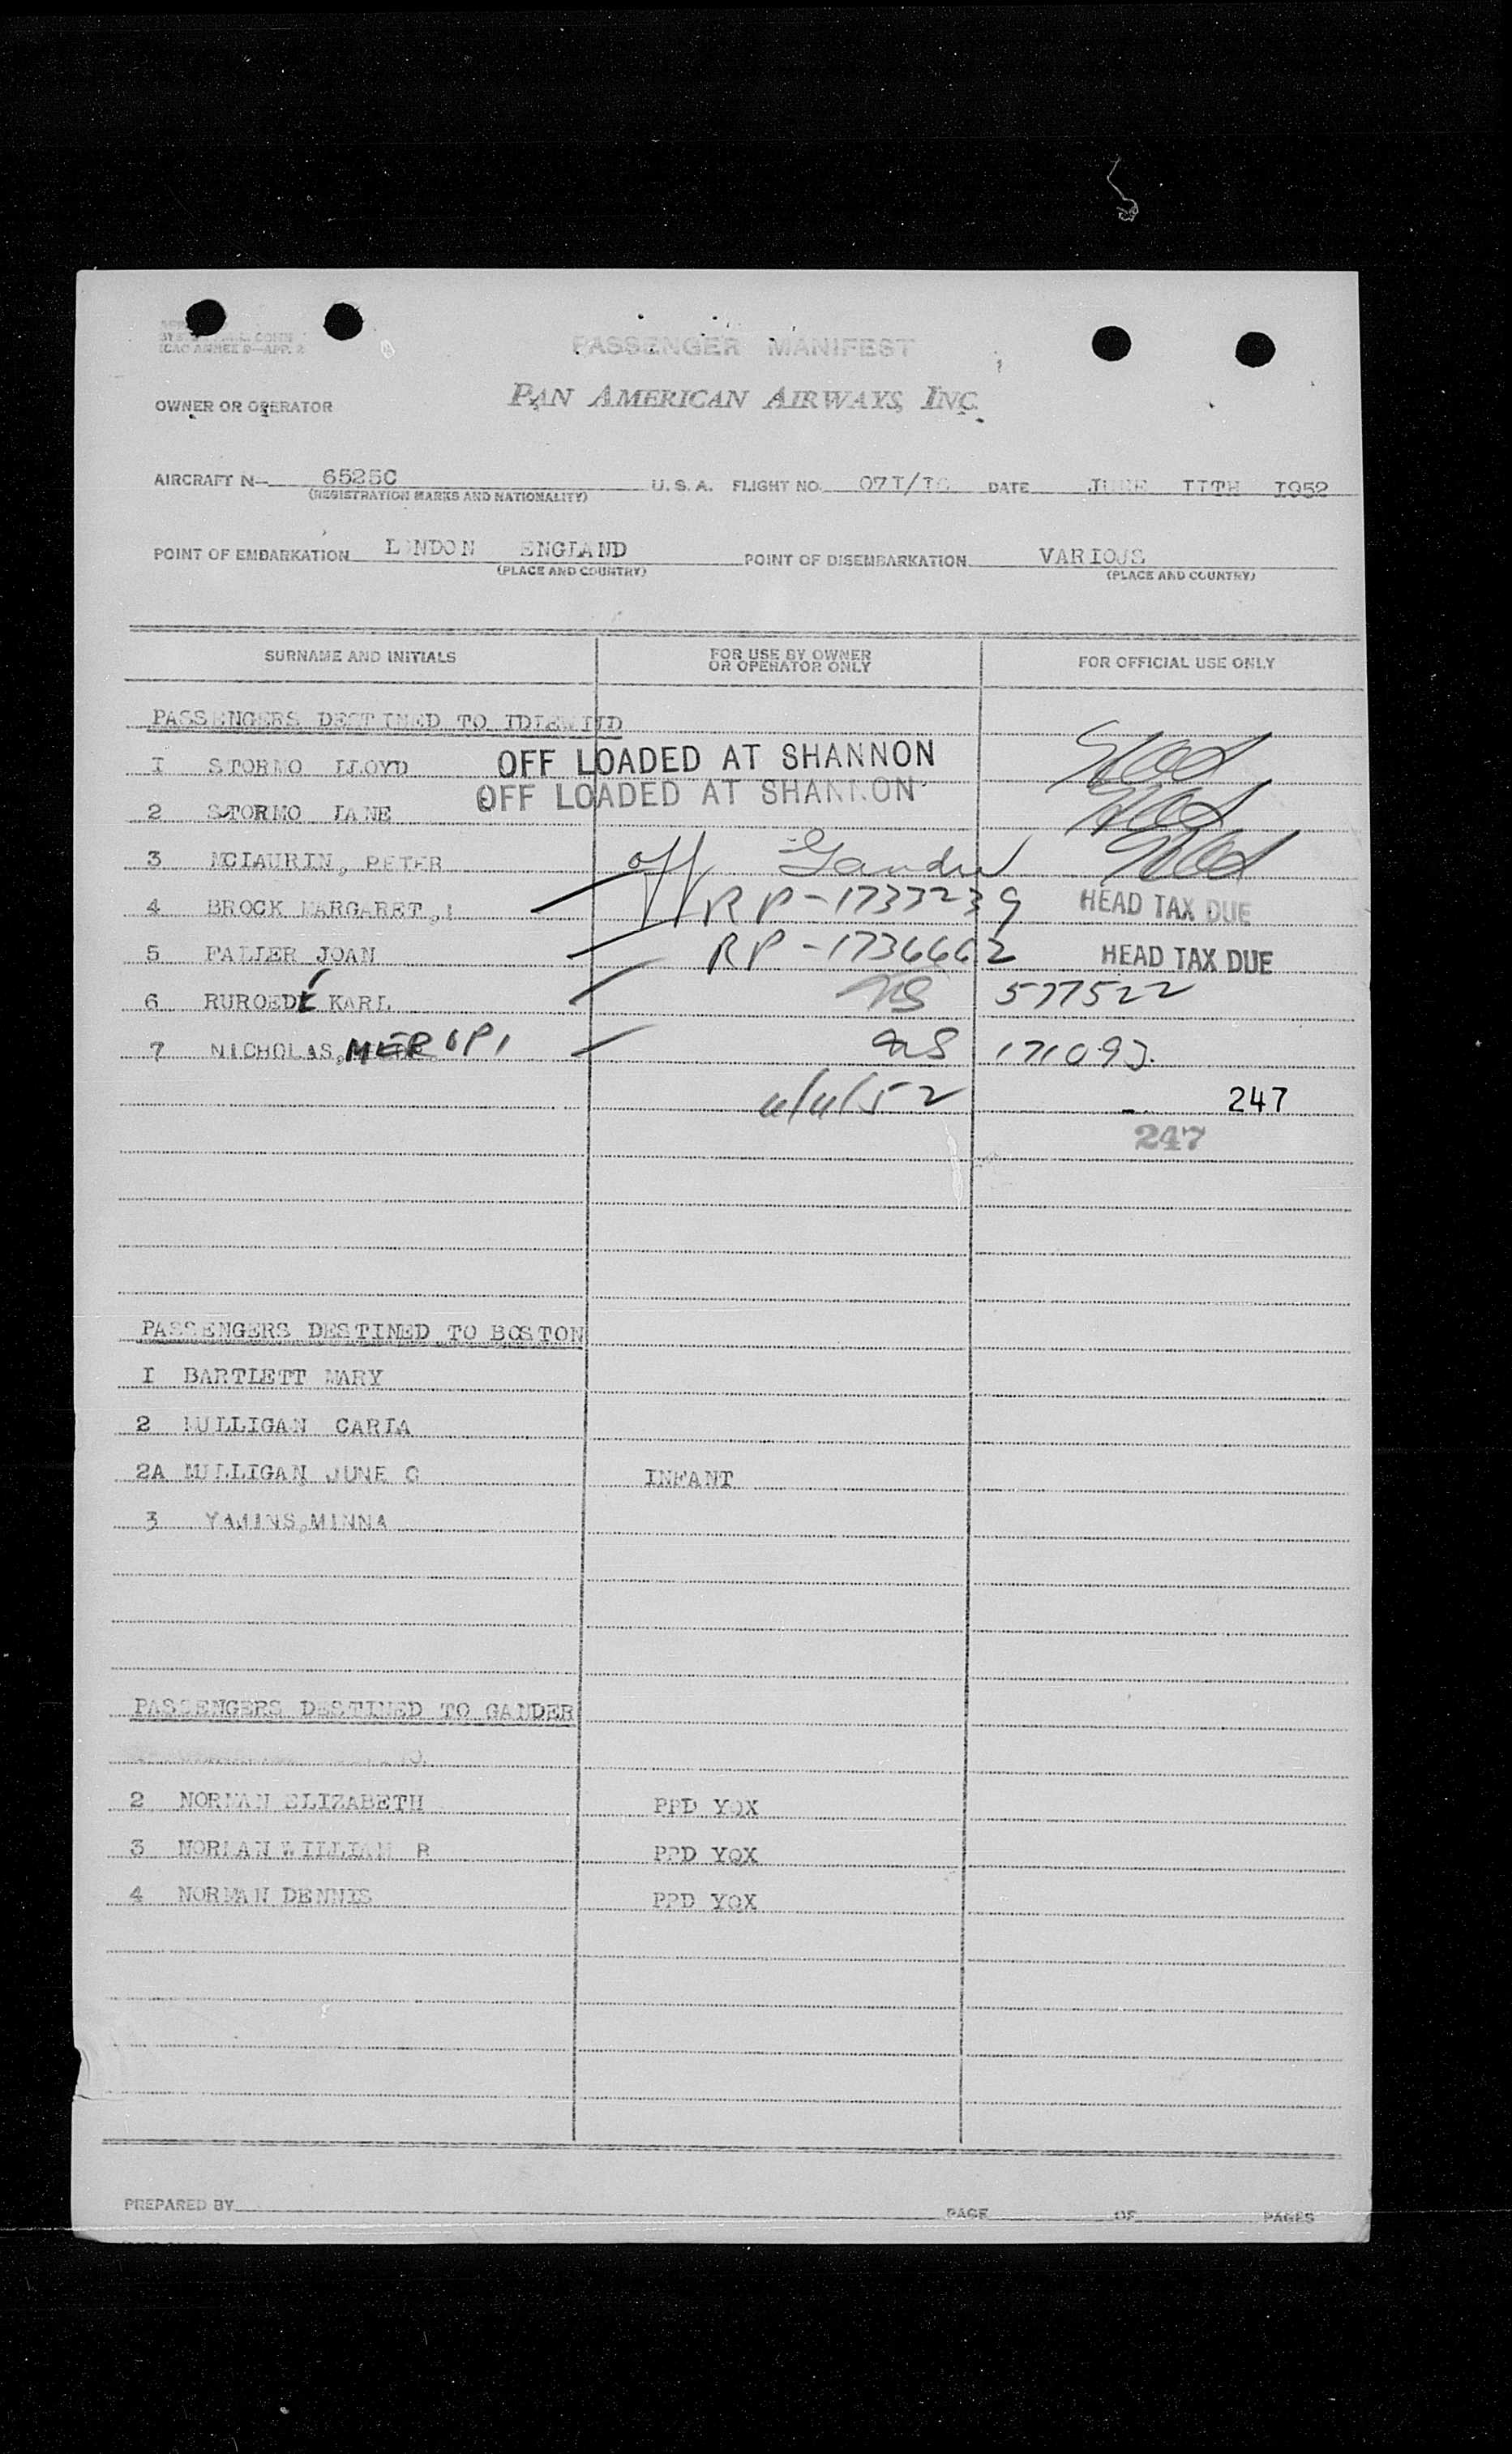 ICAO ANNEX 9—APP. 2
PASSENGER MANIFEST
OWNER OR OPERATOR PAN AMERICAN AIRWAYS, INC.
AIRCRAFT N— 6525C U. S. A. FLIGHT NO. 07I/IO DATE JUNE IITH I952
(REGISTRATION MARKS AND NATIONALITY)
POINT OF EMBARKATION LONDON ENGLAND POINT OF DISEMBARKATION VARIOUS
(PLACE AND COUNTRY) (PLACE AND COUNTRY)
SURNAME AND INITIALS FOR USE BY OWNER OR OPERATOR ONLY FOR OFFICIAL USE ONLY
PASSENGERS DESTINED TO IDLEWILD
I STORMO LLOYD OFF LOADED AT SHANNON
OFF LOADED AT SHANNON
2 STORMO JANE
3 MCLAURIN, PETER off Gander
4 BROCK MARGARET, RP-1737239 HEAD TAX DUE
5 JOAN RP-1736662 HEAD TAX DUE
6 RUROEDE KARL NS 577522
7 NICHOLAS, MEROPI NS 171093
11/11/52 247
247
PASSENGERS DESTINED TO BOSTON
I BARTLETT MARY
2 MULLIGAN CARLA
2A MULLIGAN JUNE C INFANT
3 YAMINS, MINNA
PASSENGERS DESTINED TO GANDER
2 NORMAN ELIZABETH PPD YQX
3 NORMAN WILLIAM R PPD YQX
4 NORMAN DENNIS PPD YQX
PREPARED BY PAGE OF PAGES